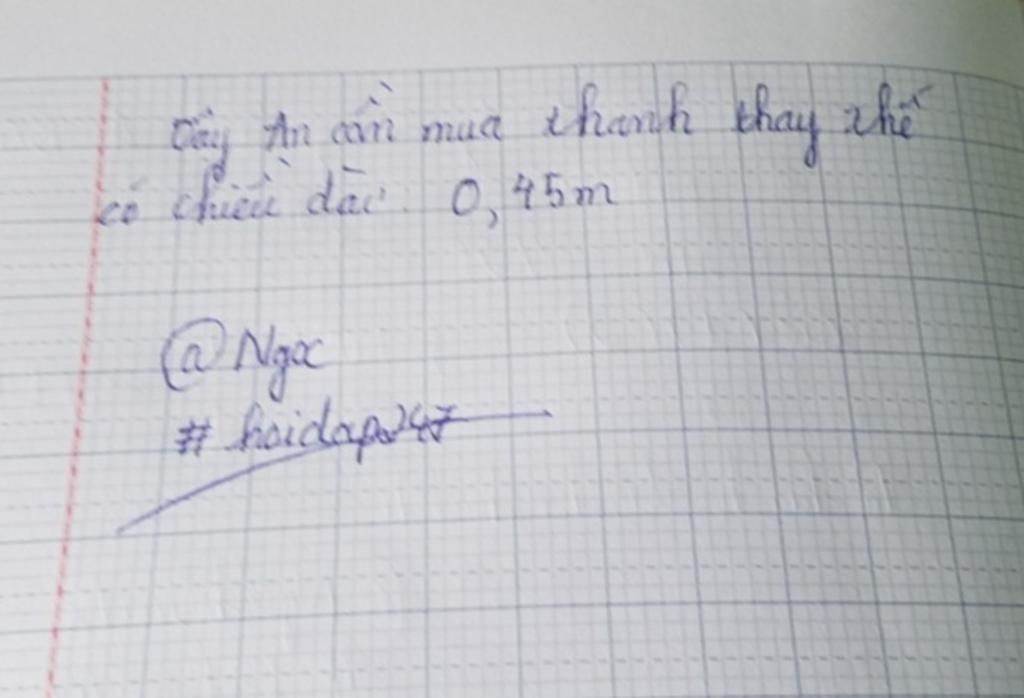 Vậy An cần mua thanh thay thế
có chiều dài 0,45m
@Ngoc
# hoidap247